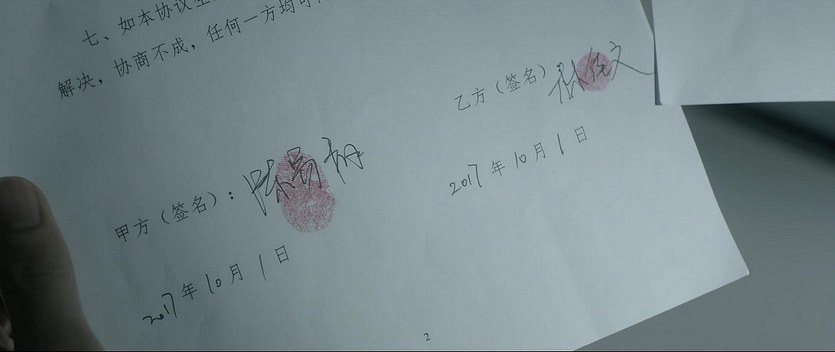 七、如本协议
解决，协商不成，任何一方均可
甲方（签名）：
乙方（签名）：
2017年10月1日
2017年10月1日
2